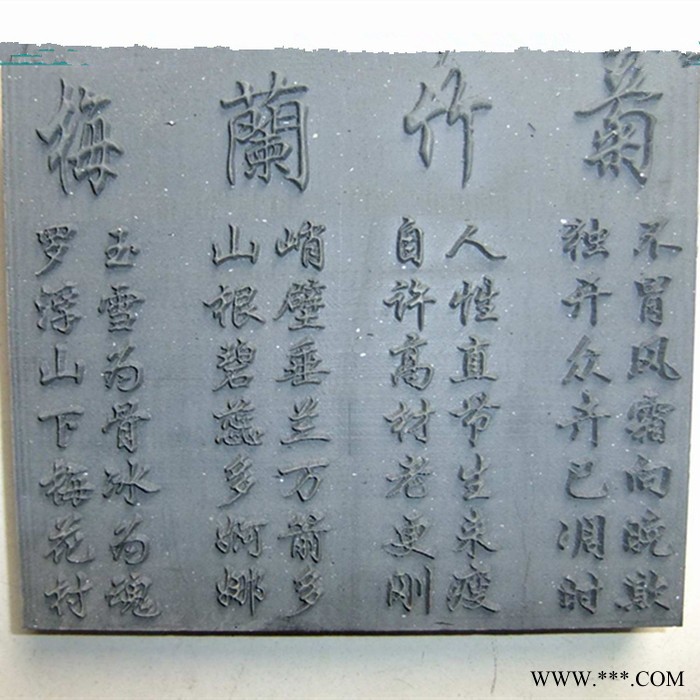 菊
不冒风霜向晚欺
独开众卉已凋时
竹
人性直节生来瘦
自许高材老更刚
蘭
峭壁垂兰万箭多
山根碧蕊多婀娜
梅
玉雪为骨冰为魂
罗浮山下梅花村
WWW.***.COM